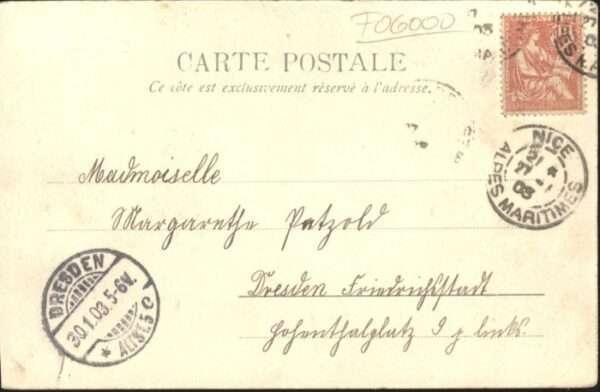 F06000
CARTE POSTALE
Ce côté est exclusivement réservé à l'adresse.
NICE
ALPES MARITIMES
03
Madmoiselle
Margarethe Patzold
Dresden Friedrichstadt
Hohenthalplatz 9 g links.
DRESDEN
30.1.03.5-6V.
* ALTST.5 c